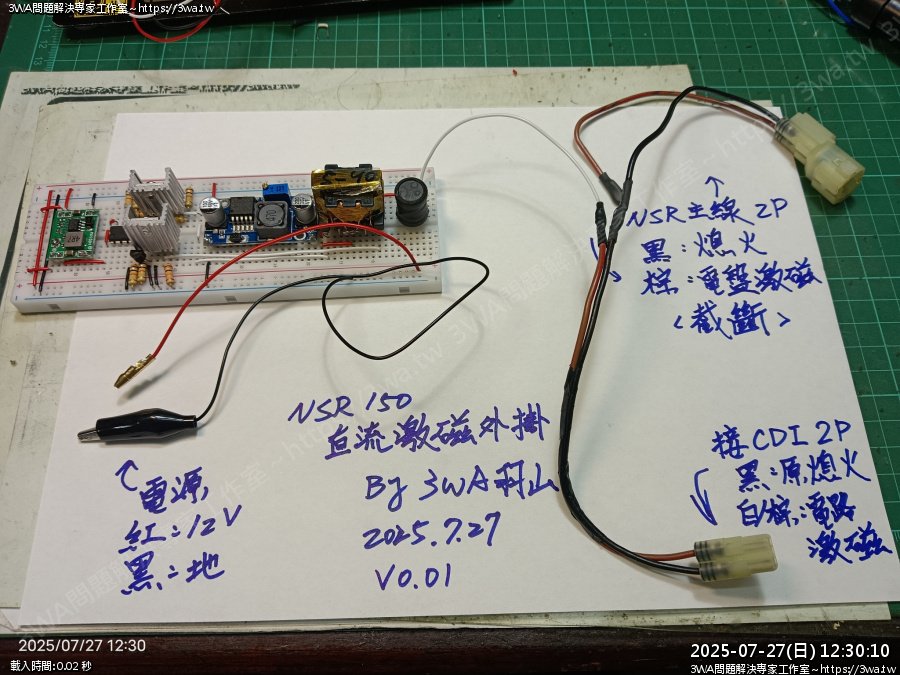 3WA問題解決專家工作室~https://3wa.tw
NSR主線2P
黑:熄火
棕:電盤激磁
<截斷>
NSR 150
直流激磁外掛
By 3WA羽山
2025.7.27
V0.01
電源
紅:12V
黑:地
接CDI 2P
黑:原熄火
白/棕:電路
激磁
2025/07/27 12:30
載入時間:0.02 秒
2025-07-27(日) 12:30:10
3WA問題解決專家工作室~https://3wa.tw